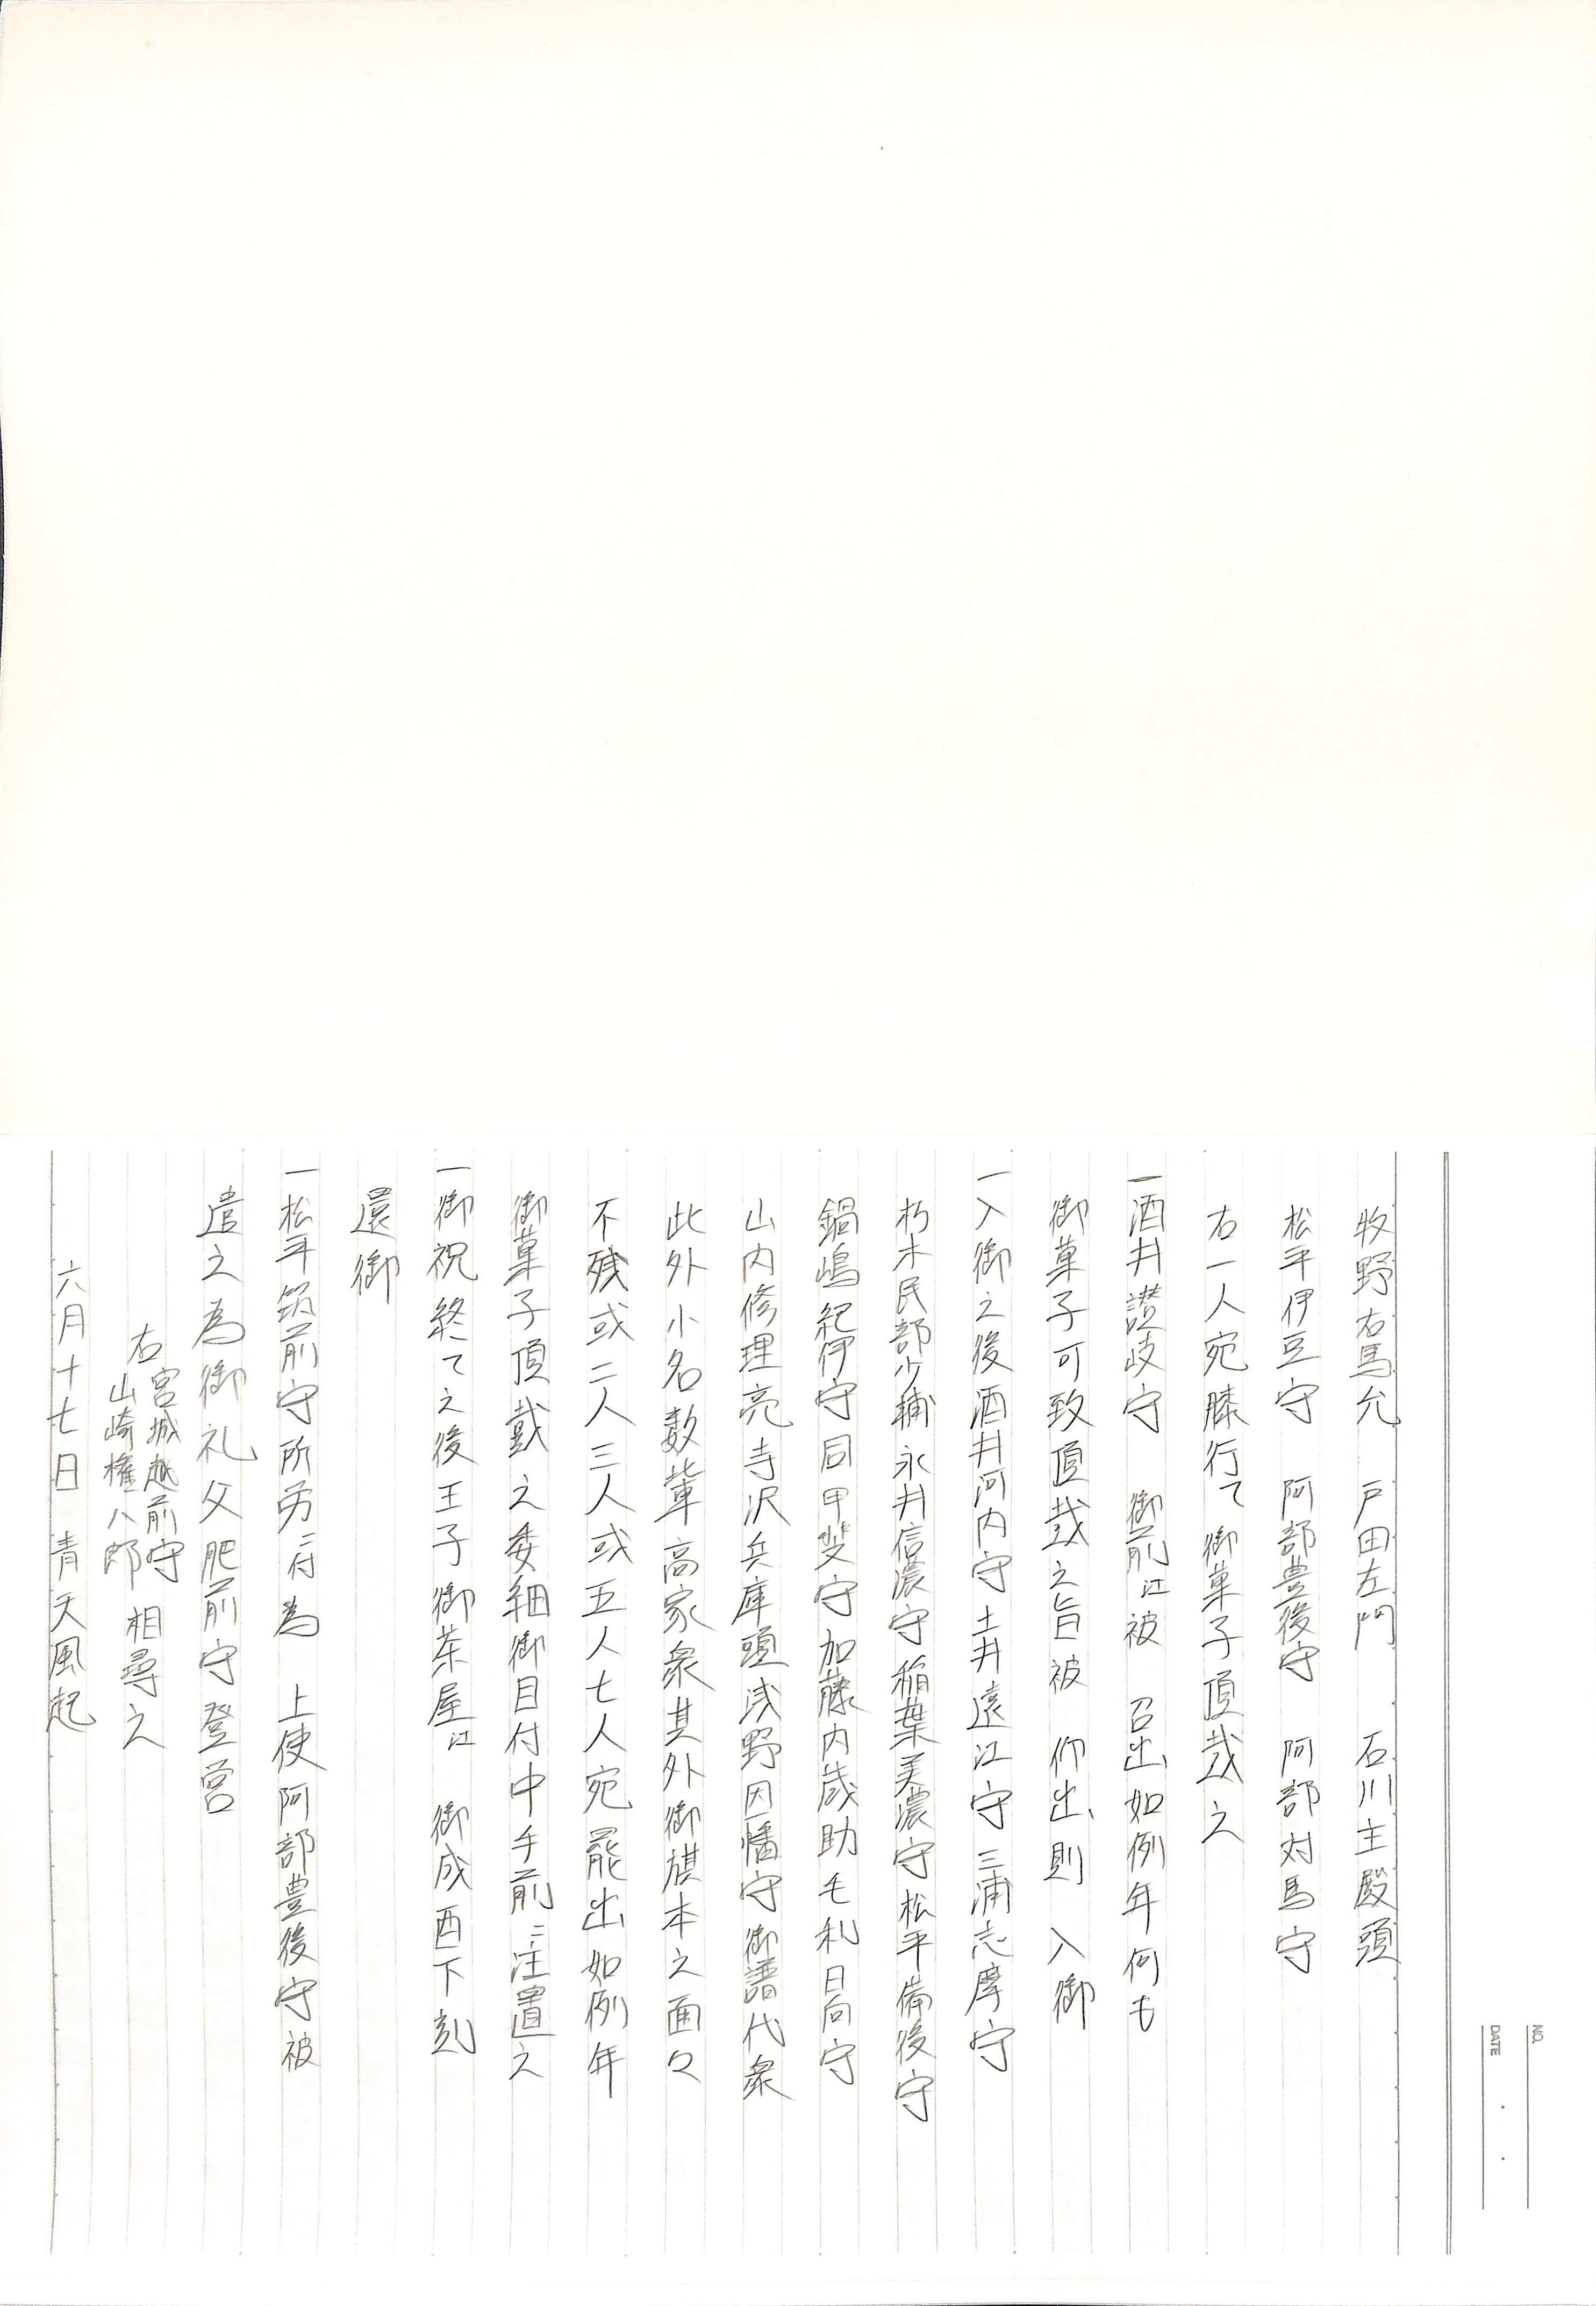 牧野右馬允　戸田左門　石川主殿頭
松平伊豆守　阿部豊後守　阿部対馬守
右一人宛膝行て御菓子頂戴之
一酒井讃岐守　御前江被　召出如例年何も
御菓子可致頂戴之旨被　仰出則　入御
一入御之後酒井河内守土井遠江守三浦志摩守
朽木民部少輔永井信濃守稲葉美濃守松平備後守
鍋嶋紀伊守同甲斐守加藤内蔵助毛利日向守
山内修理亮寺沢兵庫頭浅野因幡守御譜代衆
此外小名数輩高家衆其外御旗本之面々
不残或二人三人或五人七人宛罷出如例年
御菓子頂戴之委細御目付中手前ニ注置之
一御祝終て之後王子御茶屋江　御成酉下刻
還御
一松平筑前守所労ニ付為　上使阿部豊後守被
遣之為御礼父肥前守登営
右宮城越前守
山崎権八郎　相尋之
六月十七日　青天風起
NO.
DATE　・　・